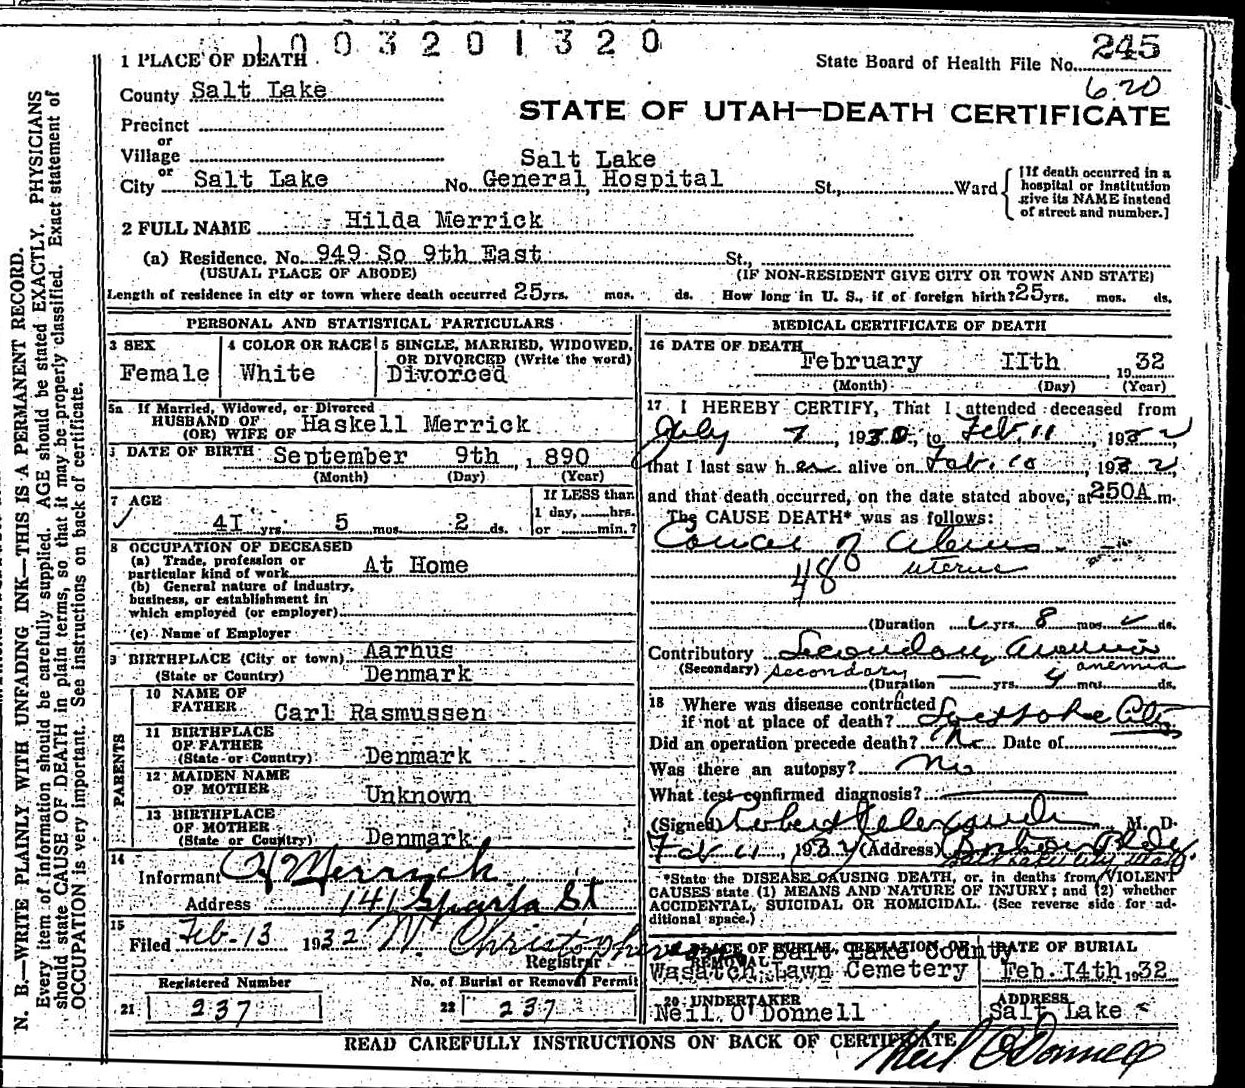 1003201320
1 PLACE OF DEATH
State Board of Health File No. 245
620
County Salt Lake
STATE OF UTAH—DEATH CERTIFICATE
Precinct
or
Village
Salt Lake
or
City Salt Lake No. General Hospital St., Ward
[If death occurred in a
hospital or institution
give its NAME instead
of street and number.]
2 FULL NAME Hilda Merrick
(a) Residence. No. 949 So 9th East St.,
(USUAL PLACE OF ABODE) (IF NON-RESIDENT GIVE CITY OR TOWN AND STATE)
Length of residence in city or town where death occurred 25 yrs. mos. ds. How long in U. S., if of foreign birth? 25 yrs. mos. ds.
PERSONAL AND STATISTICAL PARTICULARS
3 SEX
Female
4 COLOR OR RACE
White
5 SINGLE, MARRIED, WIDOWED,
OR DIVORCED (Write the word)
Divorced
5a If Married, Widowed, or Divorced
HUSBAND OF
(OR) WIFE OF Haskell Merrick
DATE OF BIRTH September 9th, 1890
(Month) (Day) (Year)
7 AGE
4I yrs. 5 mos. 2 ds.
If LESS than
1 day, hrs.
or min.?
8 OCCUPATION OF DECEASED
(a) Trade, profession or
particular kind of work At Home
(b) General nature of industry,
business, or establishment in
which employed (or employer)
(c) Name of Employer
9 BIRTHPLACE (City or town) Aarhus
(State or Country) Denmark
PARENTS
10 NAME OF
FATHER Carl Rasmussen
11 BIRTHPLACE
OF FATHER
(State or Country) Denmark
12 MAIDEN NAME
OF MOTHER Unknown
13 BIRTHPLACE
OF MOTHER
(State or Country) Denmark
14
Informant H Merrick
Address 141 Sparta St
15
Filed Feb-13 1932 N. Christopherson
Registrar
Registered Number
21 237
No. of Burial or Removal Permit
22 237
MEDICAL CERTIFICATE OF DEATH
16 DATE OF DEATH
February IIth, 1932
(Month) (Day) (Year)
17 I HEREBY CERTIFY, That I attended deceased from
July 7, 1930, to Feb. 11, 1932
that I last saw her alive on Feb. 10, 1932
and that death occurred, on the date stated above, at 250A m.
The CAUSE DEATH* was as follows:
Cancer of uterus
48 uterus
(Duration yrs. 8 mos. ds.
Contributory Secondary anemia
(Secondary) secondary anemia
(Duration — yrs. 4 mos. ds.
18 Where was disease contracted
if not at place of death? Salt Lake City
Did an operation precede death? No Date of
Was there an autopsy? No
What test confirmed diagnosis?
(Signed) Robert Alexander M. D.
Feb 11, 1932 (Address) Boston Bldg.
Salt Lake City Utah
*State the DISEASE CAUSING DEATH, or, in deaths from VIOLENT
CAUSES state (1) MEANS AND NATURE OF INJURY; and (2) whether
ACCIDENTAL, SUICIDAL OR HOMICIDAL. (See reverse side for ad-
ditional space.)
19 PLACE OF BURIAL, CREMATION, OR
REMOVAL Salt Lake County
Wasatch Lawn Cemetery
DATE OF BURIAL
Feb. I4th 1932
20 UNDERTAKER
Neil O'Donnell
ADDRESS
Salt Lake
READ CAREFULLY INSTRUCTIONS ON BACK OF CERTIFICATE
Neil O'Donnell
N. B.—WRITE PLAINLY WITH UNFADING INK—THIS IS A PERMANENT RECORD.
Every item of information should be carefully supplied. AGE should be stated EXACTLY. PHYSICIANS
should state CAUSE OF DEATH in plain terms, so that it may be properly classified. Exact statement of
OCCUPATION is very important. See instructions on back of certificate.